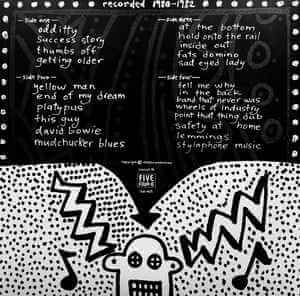 recorded 1980-1982
side one
oddity
success story
thumbs off
getting older
side two
yellow man
end of my dream
platypus
this guy
david bowie
mudchucker blues
side three
at the bottom
hold onto the rail
inside out
fats domino
sad eyed lady
side four
tell me why
in the back
band that never was
wheels of industry
point that thing dub
safety at home
lemmings
stylaphone music
FIVE
FOUR